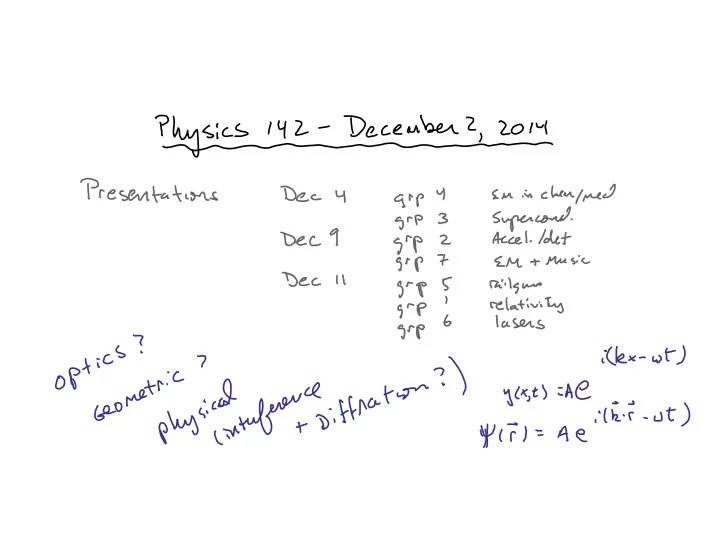 Physics 142 – December 2, 2014
Presentations Dec 4 grp 4 EM in chem/med
grp 3 Supercond.
Dec 9 grp 2 Accel./det
grp 7 EM + Music
Dec 11 grp 5 railgun
grp 1 relativity
grp 6 lasers
optics?
Geometric?
physical
(intuference
+ Diffration?)
y(x,t) = Ae^{i(kx-ωt)}
ψ(r⃗) = Ae^{i(k⃗·r⃗-ωt)}